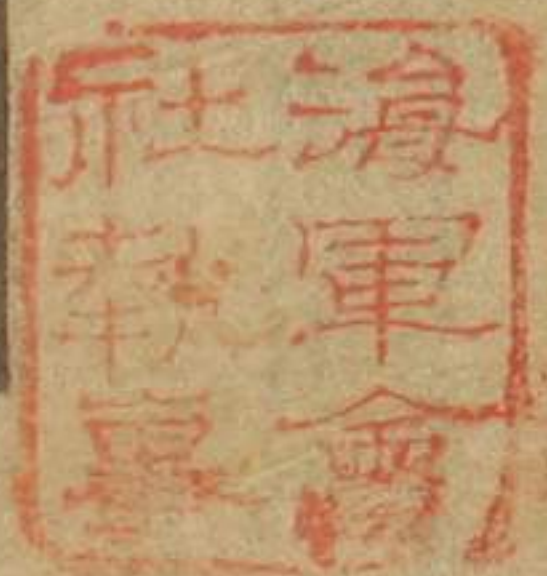 海軍會
社執